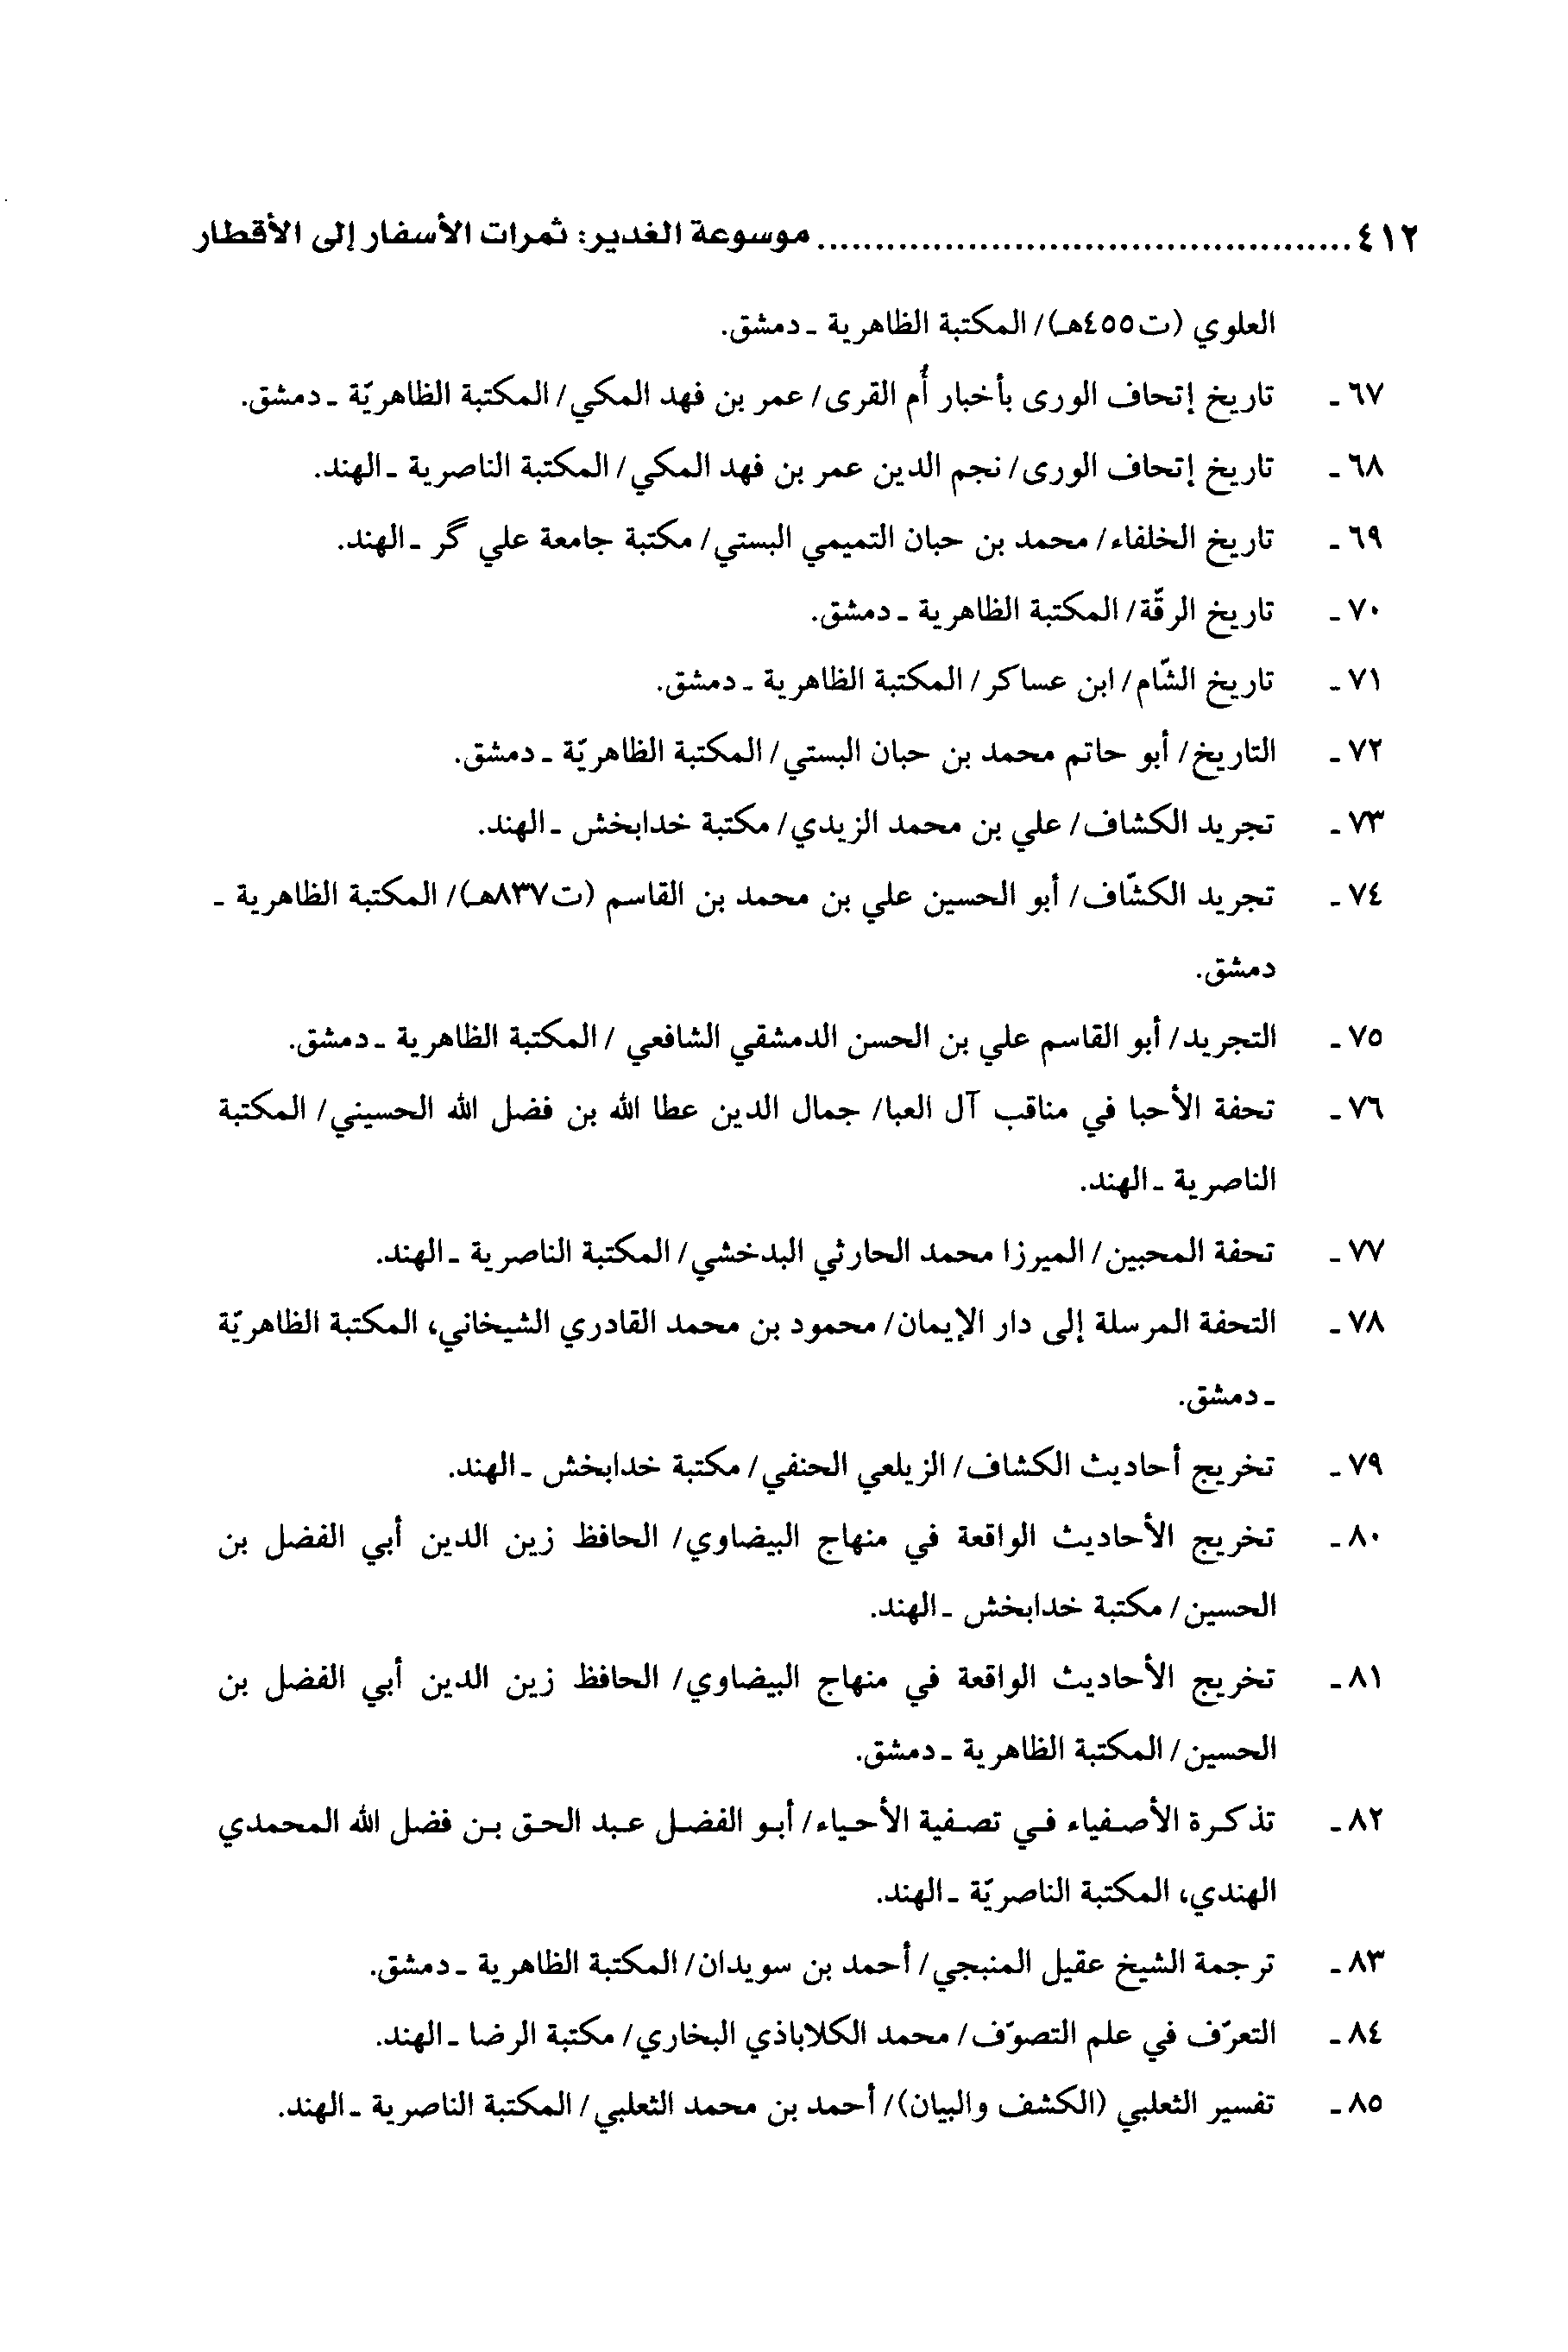 ٤١٢ .............................................. موسوعة الغدير: ثمرات الأسفار إلى الأقطار
العلوي (ت٤٥٥هـ)/ المكتبة الظاهرية ـ دمشق.
٦٧ ـ تاريخ إتحاف الورى بأخبار أُم القرى/ عمر بن فهد المكي/ المكتبة الظاهريّة ـ دمشق.
٦٨ ـ تاريخ إتحاف الورى/ نجم الدين عمر بن فهد المكي/ المكتبة الناصرية ـ الهند.
٦٩ ـ تاريخ الخلفاء/ محمد بن حبان التميمي البستي/ مكتبة جامعة علي گر ـ الهند.
٧٠ ـ تاريخ الرقّة/ المكتبة الظاهرية ـ دمشق.
٧١ ـ تاريخ الشّام/ ابن عساكر/ المكتبة الظاهرية ـ دمشق.
٧٢ ـ التاريخ/ أبو حاتم محمد بن حبان البستي/ المكتبة الظاهريّة ـ دمشق.
٧٣ ـ تجريد الكشاف/ علي بن محمد الزيدي/ مكتبة خدابخش ـ الهند.
٧٤ ـ تجريد الكشّاف/ أبو الحسين علي بن محمد بن القاسم (ت٨٣٧هـ)/ المكتبة الظاهرية ـ
دمشق.
٧٥ ـ التجريد/ أبو القاسم علي بن الحسن الدمشقي الشافعي / المكتبة الظاهرية ـ دمشق.
٧٦ ـ تحفة الأحبا في مناقب آل العبا/ جمال الدين عطا الله بن فضل الله الحسيني/ المكتبة
الناصرية ـ الهند.
٧٧ ـ تحفة المحبين/ الميرزا محمد الحارثي البدخشي/ المكتبة الناصرية ـ الهند.
٧٨ ـ التحفة المرسلة إلى دار الإيمان/ محمود بن محمد القادري الشيخاني، المكتبة الظاهريّة
ـ دمشق.
٧٩ ـ تخريج أحاديث الكشاف/ الزيلعي الحنفي/ مكتبة خدابخش ـ الهند.
٨٠ ـ تخريج الأحاديث الواقعة في منهاج البيضاوي/ الحافظ زين الدين أبي الفضل بن
الحسين/ مكتبة خدابخش ـ الهند.
٨١ ـ تخريج الأحاديث الواقعة في منهاج البيضاوي/ الحافظ زين الدين أبي الفضل بن
الحسين/ المكتبة الظاهرية ـ دمشق.
٨٢ ـ تذكرة الأصفياء في تصفية الأحياء/ أبو الفضل عبد الحق بن فضل الله المحمدي
الهندي، المكتبة الناصريّة ـ الهند.
٨٣ ـ ترجمة الشيخ عقيل المنبجي/ أحمد بن سويدان/ المكتبة الظاهرية ـ دمشق.
٨٤ ـ التعرّف في علم التصوّف/ محمد الكلاباذي البخاري/ مكتبة الرضا ـ الهند.
٨٥ ـ تفسير الثعلبي (الكشف والبيان)/ أحمد بن محمد الثعلبي/ المكتبة الناصرية ـ الهند.